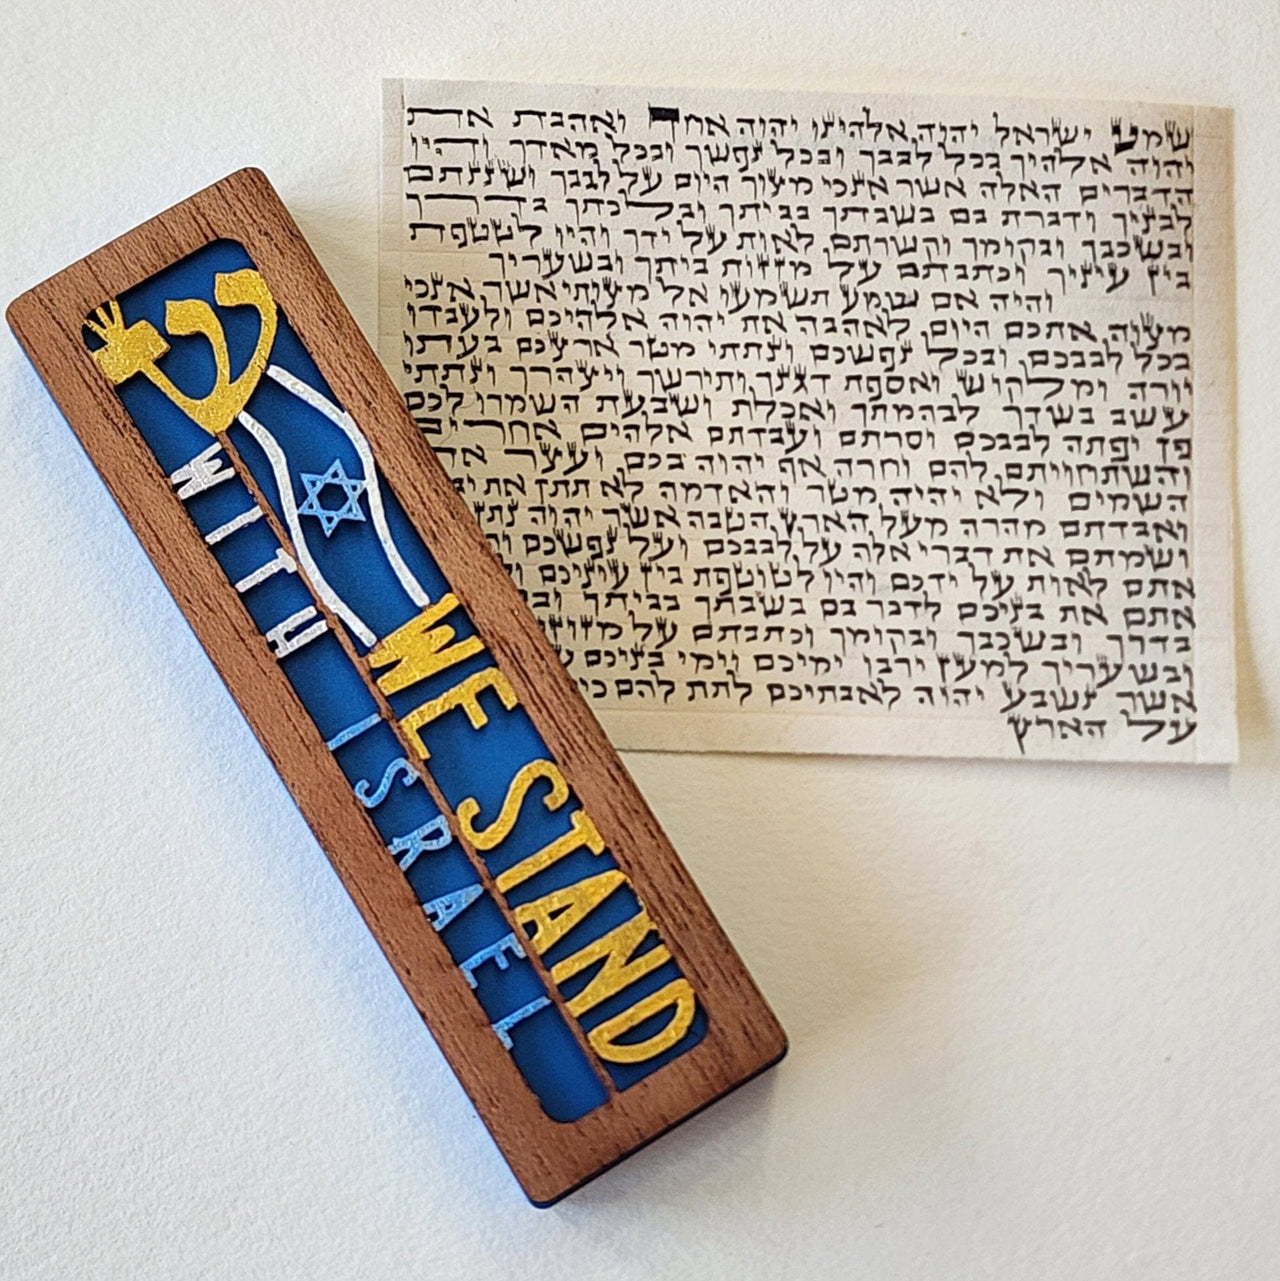 שמע ישראל יהוה אלהינו יהוה אחד ואהבת את
יהוה אלהיך בכל לבבך ובכל נפשך ובכל מאדך והיו
הדברים האלה אשר אנכי מצוך היום על לבבך ושננתם
לבניך ודברת בם בשבתך בביתך ובלכתך בדרך
ובשכבך ובקומך וקשרתם לאות על ידך והיו לטטפת
בין עיניך וכתבתם על מזזות ביתך ובשעריך
והיה אם שמע תשמעו אל מצותי אשר אנכי
מצוה אתכם היום לאהבה את יהוה אלהיכם ולעבדו
בכל לבבכם ובכל נפשכם ונתתי מטר ארצכם בעתו
יורה ומלקוש ואספת דגנך ותירשך ויצהרך ונתתי
עשב בשדך לבהמתך ואכלת ושבעת השמרו לכם
פן יפתה לבבכם וסרתם ועבדתם אלהים אחרים
והשתחויתם להם וחרה אף יהוה בכם ועצר את
השמים ולא יהיה מטר והאדמה לא תתן את
ואבדתם מהרה מעל הארץ הטבה אשר יהוה
ושמתם את דברי אלה על לבבכם ועל נפשכם
אתם לאות על ידכם והיו לטוטפת בין עיניכם
אתם את בניכם לדבר בם בשבתך בביתך
בדרך ובשכבך ובקומך וכתבתם על
ובשעריך למען ירבו ימיכם וימי בניכם
אשר נשבע יהוה לאבתיכם לתת להם
על הארץ
ש
WE STAND
WITH ISRAEL